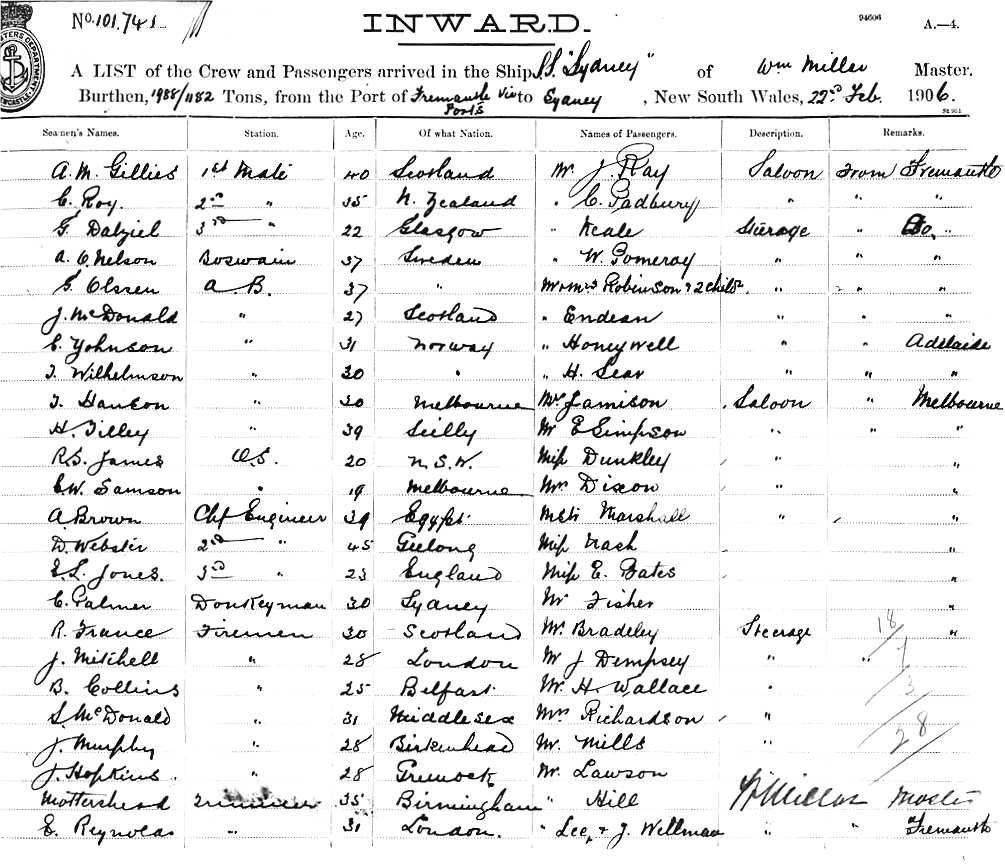 No. 101.741 INWARD. 94606 A.—4.
A LIST of the Crew and Passengers arrived in the Ship S.S. "Sydney" of Wm Millar Master.
Burthen, 1988/1182 Tons, from the Port of Fremantle Via Ports to Sydney, New South Wales, 22nd Feb. 1906.
Seamen's Names. Station. Age. Of what Nation. Names of Passengers. Description. Remarks.
A. M. Gillies 1st Mate 40 Scotland Mr J. Ray Saloon From Fremantle
C. Roy. 2nd " 35 N. Zealand " C. Padbury " " "
G. Dalziel 3rd " 22 Glasgow " Keale Steerage " Do. "
A. C. Nelson Boswain 37 Sweden " W. Pomeroy " " "
G. Olssen A.B. 37 " Mr & Mrs Robinson & 2 child " " "
J. McDonald " 27 Scotland " Endean " " "
C. Yohnson " 31 Norway " Honeywell " " Adelaide
T. Wilhelmson " 30 " " H. Sear " " "
T. Hanson " 30 Melbourne Mr Jamison Saloon " Melbourne
H. Tilley " 39 Scilly Mr E Simpson " " "
R. S. James O.S. 20 N.S.W. Miss Dunkley " "
E. W. Samson " 19 Melbourne Mrs Dixon " "
A. Brown Chf Engineer 39 Egypt Marshall " "
D. Webster 2nd " 45 Geelong Miss Nash "
E. L. Jones. 3rd " 23 England Miss E. Bates "
C. Palmer Donkeyman 30 Sydney Mr Fisher "
R. France Firemen 30 Scotland Mr. Bradeley Steerage 18 "
J. Mitchell " 28 London Mr J Dempsey " " 7
B. Collins " 25 Belfast Mr. H. Wallace " 3
S. McDonald " 31 Middlesex Mrs Richardson " 28
J. Murphy " 28 Birkenhead Mr. Mills "
J. Hopkins. " 28 Greenock Mr. Lawson
Mottershead 35 Birmingham " Hill W Millar Master
E. Reynolds " 31 London. " Lee, & J. Wellman " " Fremantle